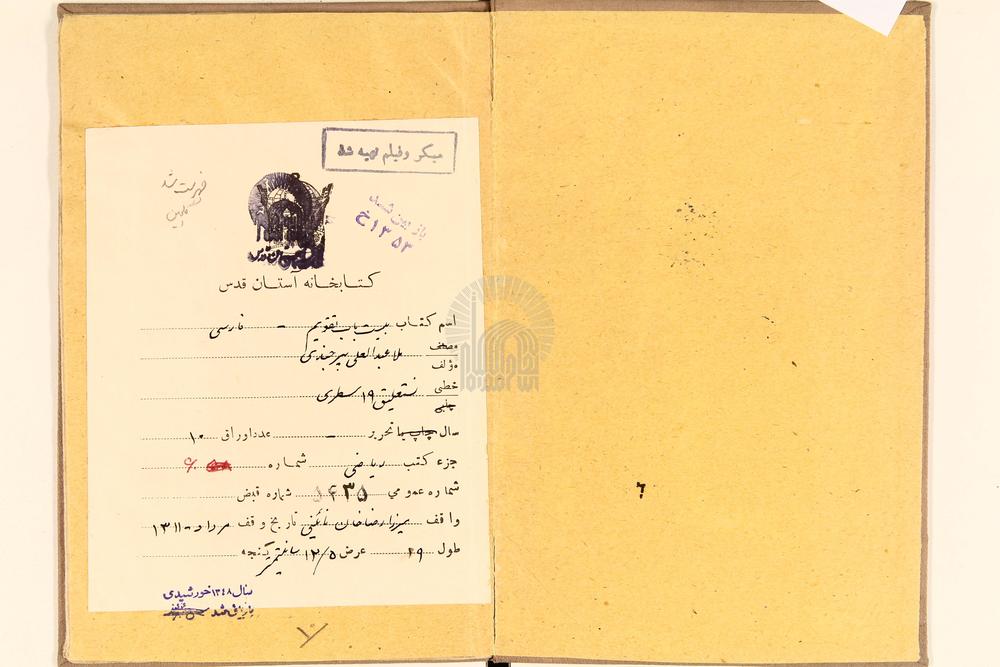 میکروفیلم تهیه شد
فهرست شد
بازبین شد
۱۳۵۳ خ
کتابخانه آستان قدس
اسم کتاب بیست باب تقویم - فارسی
مصنف
مؤلف ملا عبدالعلی بیرجندی
خطی
چاپی نستعلیق ۱۹ سطری
سال چاپ یا تحریر - عدد اوراق ۱۰
جزء کتب ریاضی شماره
شماره عمومی ۵۴۳۵ شماره قبض
واقف میرزا رضا خان نائینی تاریخ وقف مرداد - ۱۳۱۱
طول ۱۹ عرض ۱۲/۵ سانتیمتر
سال ۱۳۴۸ خورشیدی
بازبینی شد